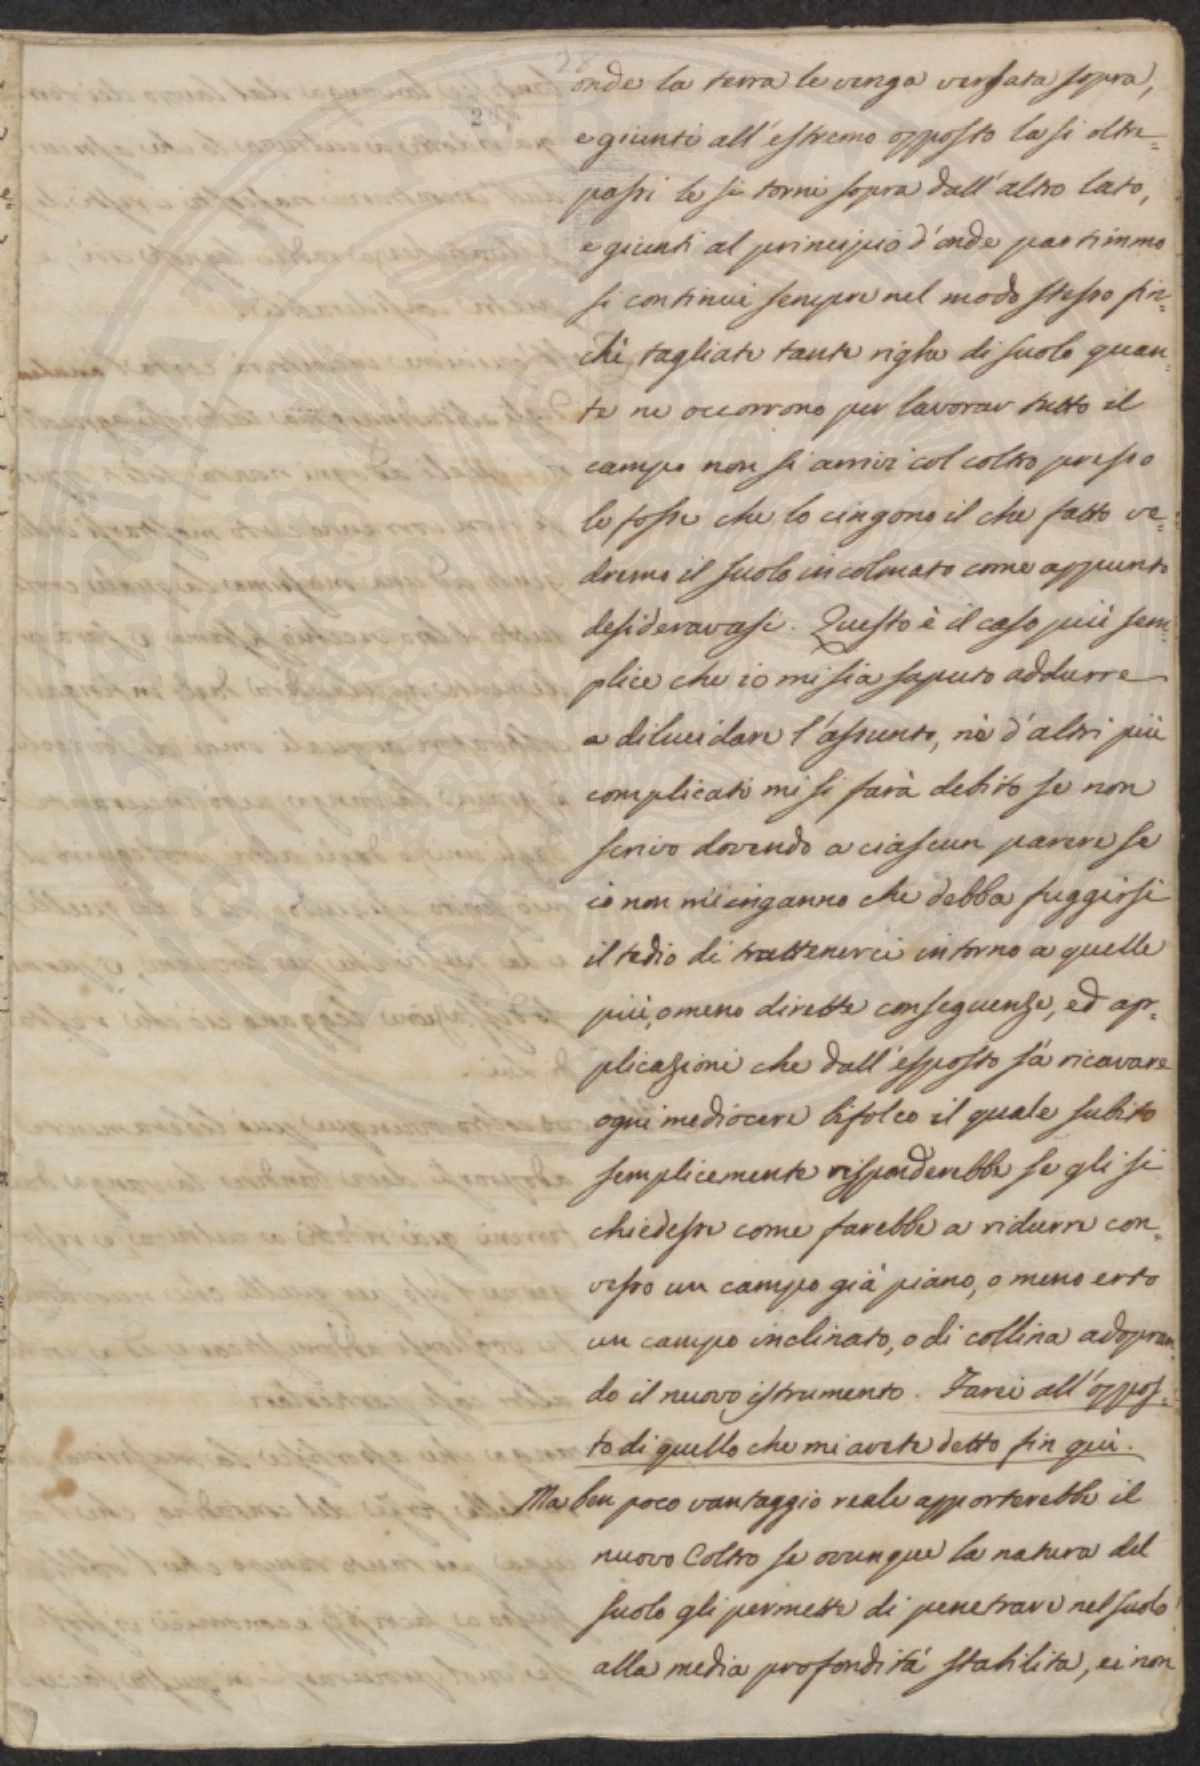 onde la terra le venga versata sopra,
e giunti all'estremo opposto la si oltre=
passi le si torni sopra dall'altro lato,
e giunti al principio d'onde partimmo
si continui sempre nel modo stesso fin=
chè tagliate tante righe di suolo quan=
te ne occorrono per lavorar tutto il
campo non si arrivi col coltro presso
le fosse che lo cingono il che fatto ve=
dremo il suolo incolmato come appunto
desideravasi. Questo è il caso più sem=
plice che io mi sia saputo addurre
a dilucidare l'assunto, nè d'altri più
complicati mi si farà debito se non
scrivo dovendo a ciascun parere se
io non m'inganno che debba fuggirsi
il tedio di trattenerci intorno a quelle
più, o meno dirette conseguenze, ed ap=
plicazioni che dall'esposto sà ricavare
ogni mediocere bifolco il quale subito
semplicemente risponderebbe se gli si
chiedesse come farebbe a ridurre con=
vesso un campo già piano, o meno erto
un campo inclinato, o di collina adopran=
do il nuovo istrumento. Farei all'oppos=
to di quello che mi avete detto fin qui.
Ma ben poco vantaggio reale apporterebbe il
nuovo Coltro se ovunque la natura del
suolo gli permette di penetrare nel suolo
alla media profondità stabilita, ei non